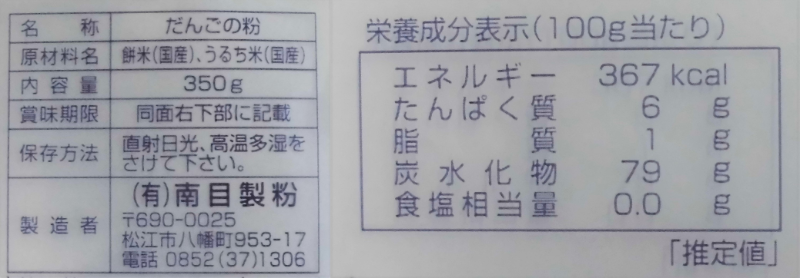 名称 だんごの粉
原材料名 餅米(国産)、うるち米(国産)
内容量 350g
賞味期限 同面右下部に記載
保存方法 直射日光、高温多湿を
さけて下さい。
製造者 (有)南目製粉
〒690-0025
松江市八幡町953-17
電話 0852(37)1306
栄養成分表示(100g当たり)
エネルギー 367kcal
たんぱく質 6 g
脂質 1 g
炭水化物 79 g
食塩相当量 0.0 g
「推定値」